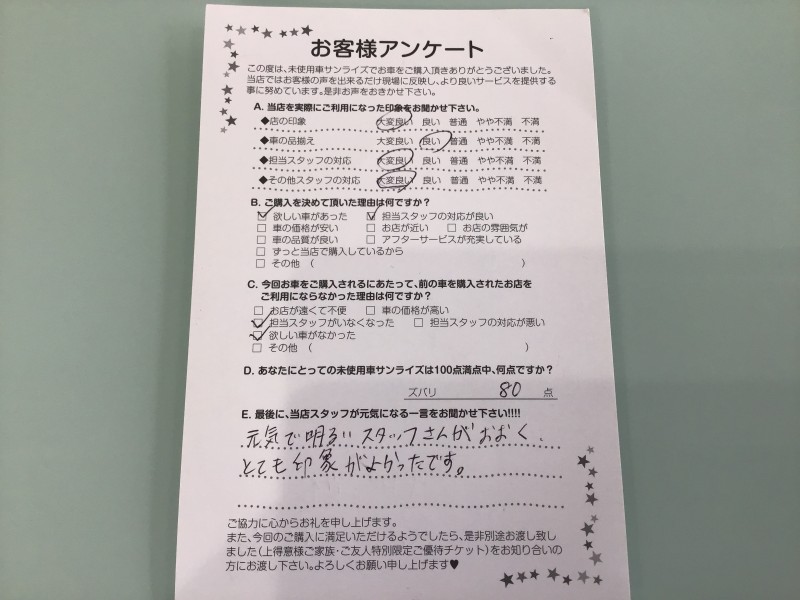 お客様アンケート
この度は、未使用車サンライズでお車をご購入頂きありがとうございました。
当店ではお客様の声を出来るだけ現場に反映し、より良いサービスを提供する
事に努めています。是非お声をおきかせ下さい。
A. 当店を実際にご利用になった印象をお聞かせ下さい。
◆店の印象 大変良い 良い 普通 やや不満 不満
◆車の品揃え 大変良い 良い 普通 やや不満 不満
◆担当スタッフの対応 大変良い 良い 普通 やや不満 不満
◆その他スタッフの対応 大変良い 良い 普通 やや不満 不満
B. ご購入を決めて頂いた理由は何ですか?
☑ 欲しい車があった ☑ 担当スタッフの対応が良い
□ 車の価格が安い □ お店が近い □ お店の雰囲気が
□ 車の品質が良い □ アフターサービスが充実している
□ ずっと当店で購入しているから
□ その他 ( )
C. 今回お車をご購入されるにあたって、前の車を購入されたお店を
ご利用にならなかった理由は何ですか?
□ お店が遠くて不便 □ 車の価格が高い
☑ 担当スタッフがいなくなった □ 担当スタッフの対応が悪い
☑ 欲しい車がなかった
□ その他 ( )
D. あなたにとっての未使用車サンライズは100点満点中、何点ですか?
ズバリ 80 点
E. 最後に、当店スタッフが元気になる一言をお聞かせ下さい!!!!
元気で明るいスタッフさんがおおく、
とても印象がよかったです。
ご協力に心からお礼を申し上げます。
また、今回のご購入に満足いただけるようでしたら、是非別途お渡し致し
ました(上得意様ご家族・ご友人特別限定ご優待チケット)をお知り合いの
方にお渡し下さい。よろしくお願い申し上げます♥